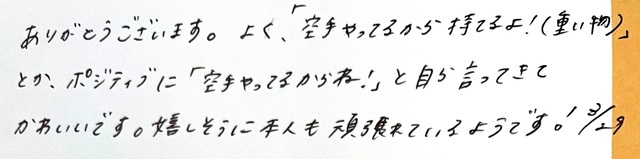 ありがとうございます。よく、「空手やってるから持てるよ!(重い物)」
とか、ポジティブに「空手やってるからね!」と自ら言ってきて
かわいいです。嬉しそうに本人も頑張れているようです。! 3/29